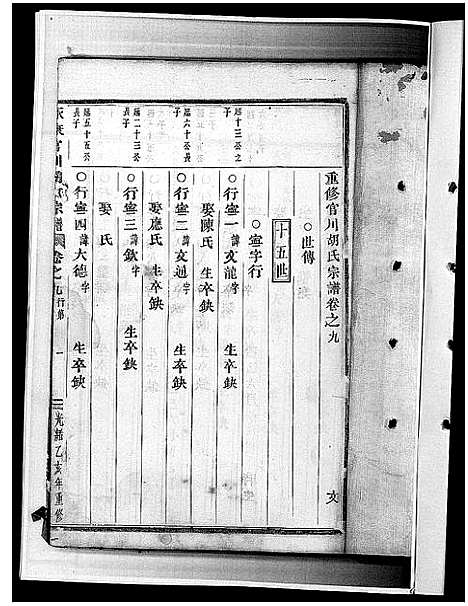 重修官川胡氏宗譜卷之九
文
○世傳
十五世
○寧字行
廱十三公之子
○行寧一 諱文龍字 生卒缺
娶陳氏 生卒缺
廱六十公長子
○行寧二 諱文通字 生卒缺
娶應氏 生卒缺
廱二十三公長子
○行寧三 諱欽字 生卒缺
娶 氏
廱五十五公長子
○行寧四 諱大德字 生卒缺
永康官川胡氏宗譜 卷之九 行第 一 光緒乙亥年重修